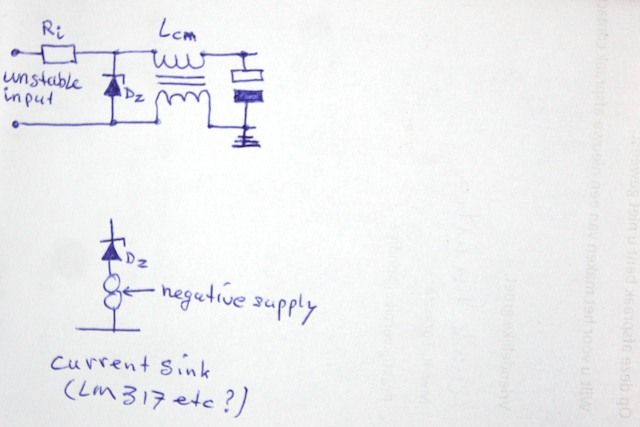 Ri
Lcm
unstable
input
Dz
Dz
negative supply
current sink
(LM317 etc?)